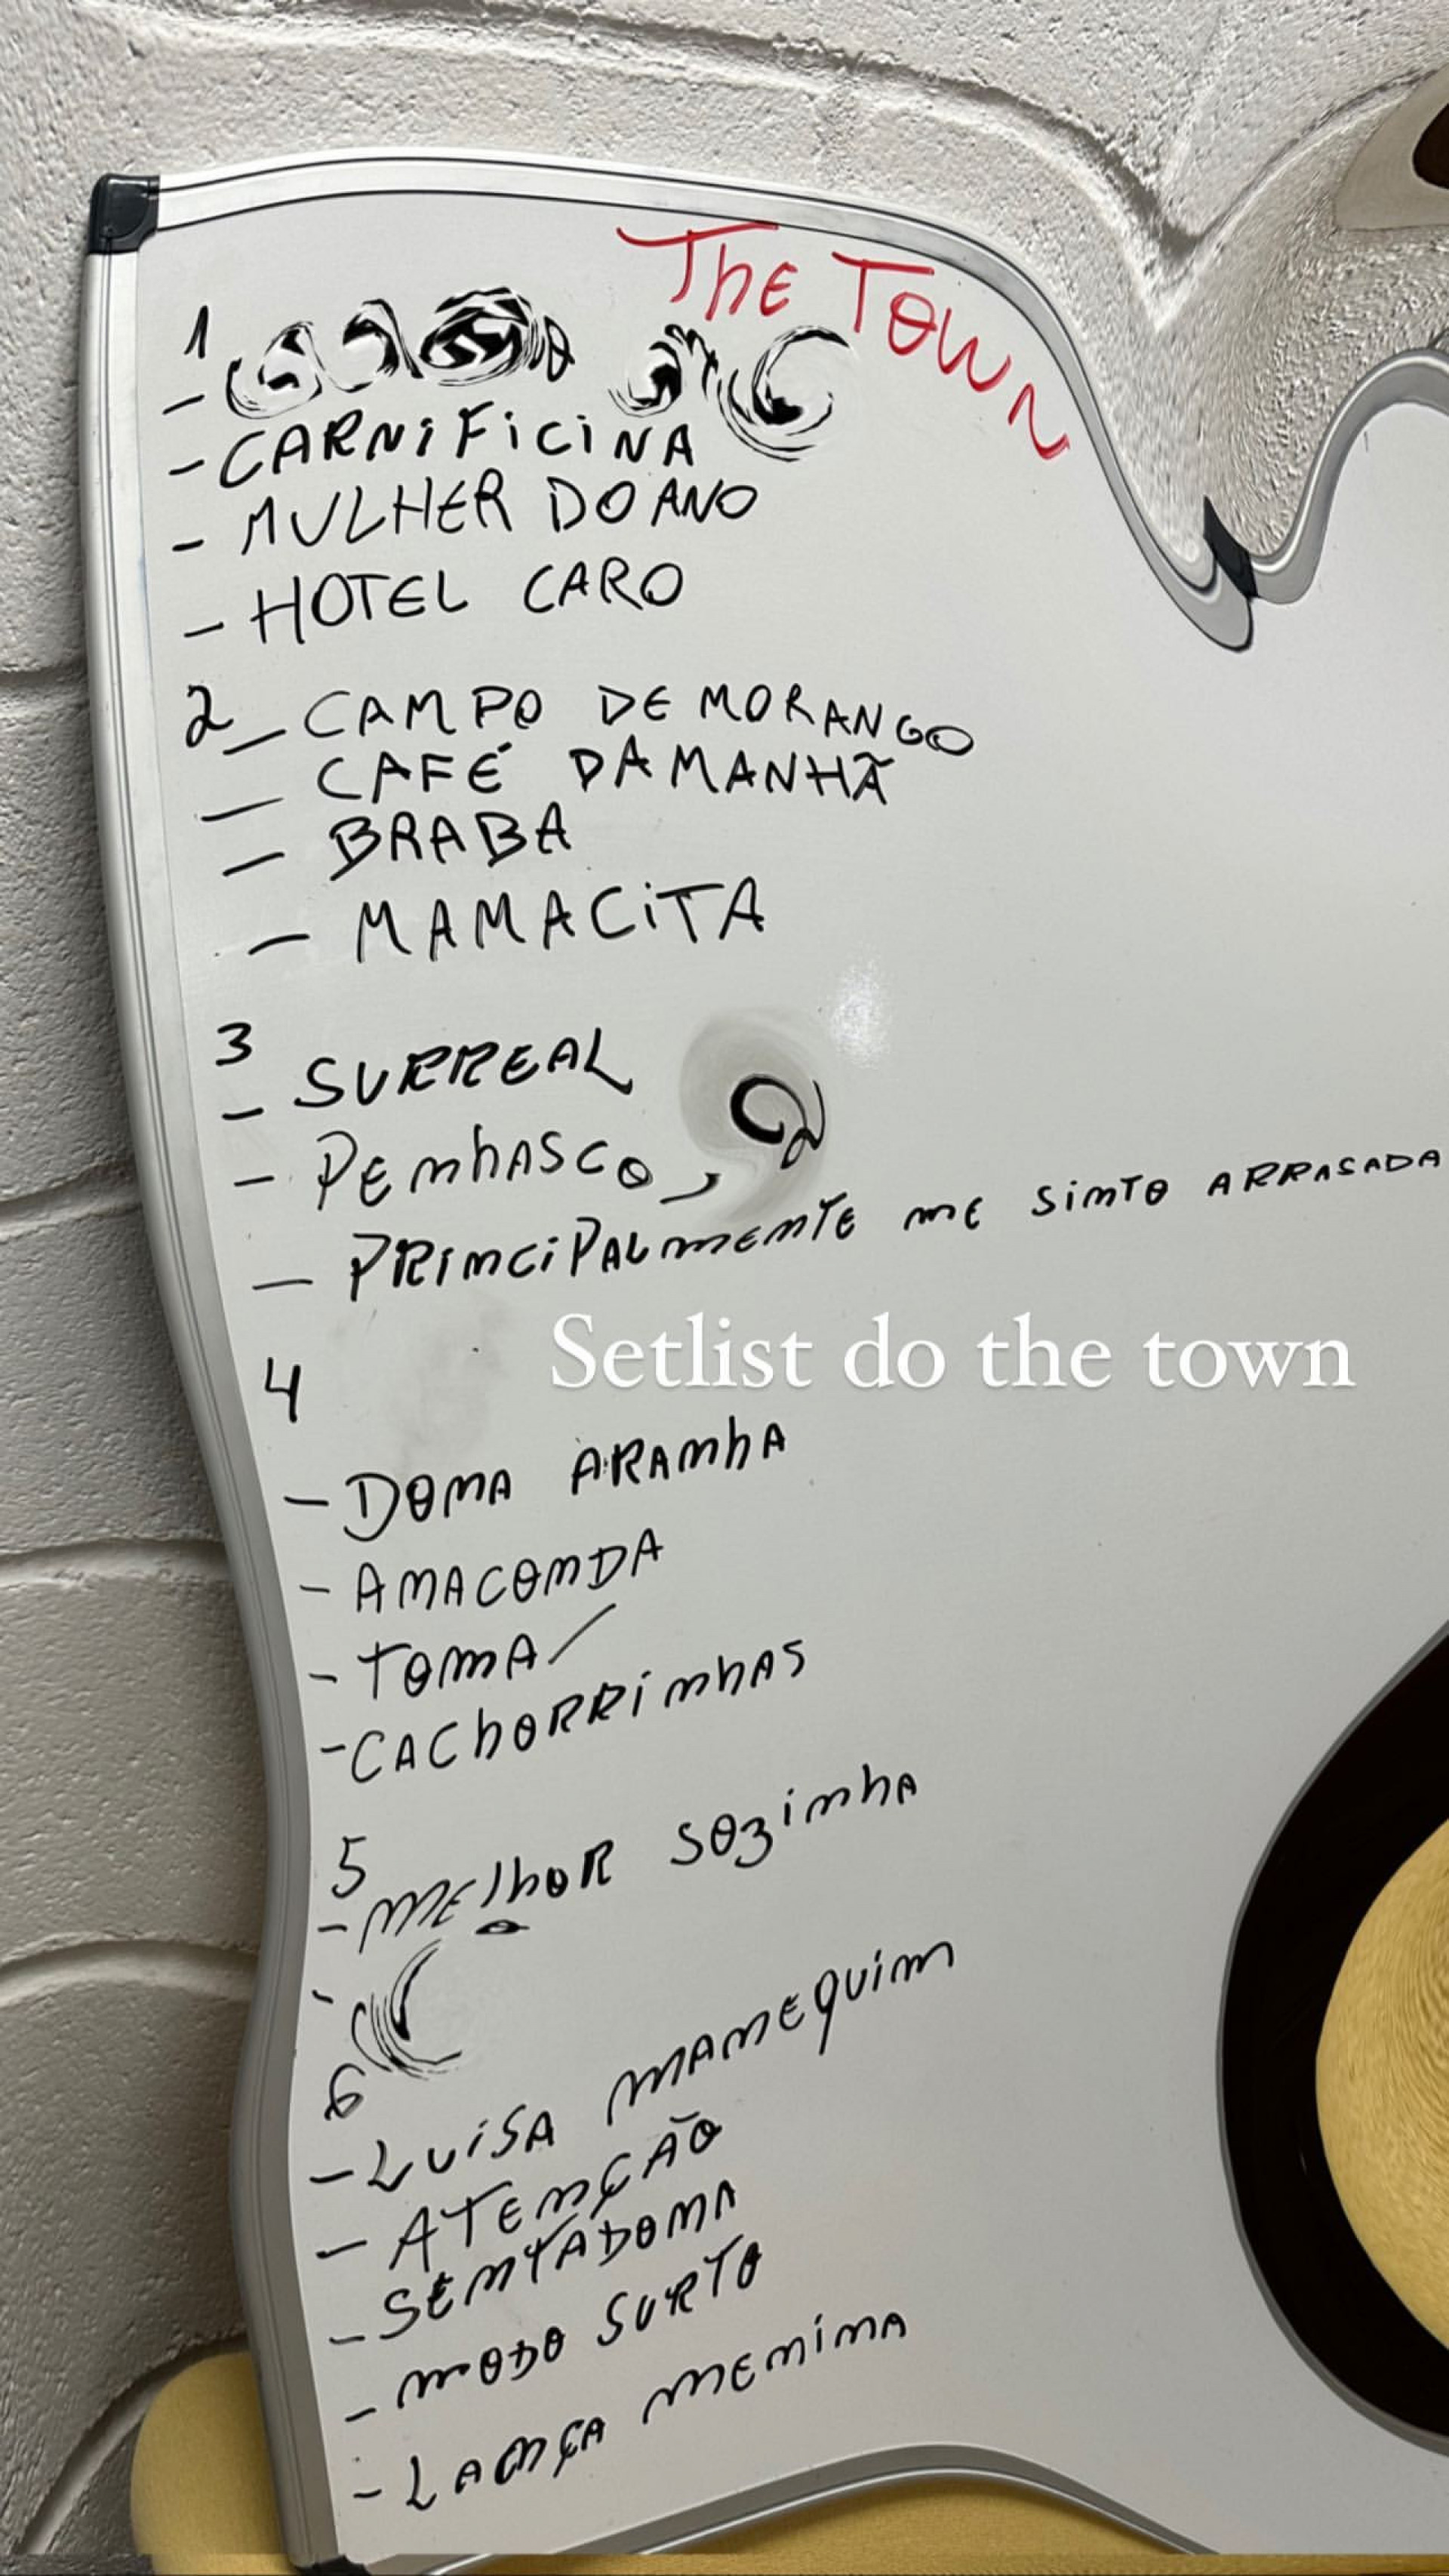 The Town
1
-
- CARNIFICINA
- MULHER DO ANO
- HOTEL CARO
2 - CAMPO DE MORANGO
- CAFÉ DA MANHÃ
- BRABA
- MAMACITA
3
- SURREAL
- PEnhASCO,
- PRInCiPALmEnTE mE SinTO ARRASADA
Setlist do the town
4
- DOnA ARAnhA
- AnACOnDA
- TOmA/
- CAChORRinhAS
5
- mElhOR SOzinhA
-
6
- LUiSA mAnEquim
- ATEnÇÃO
- SEnTADOnA
- mODO SURTO
- LAnÇA mEninA